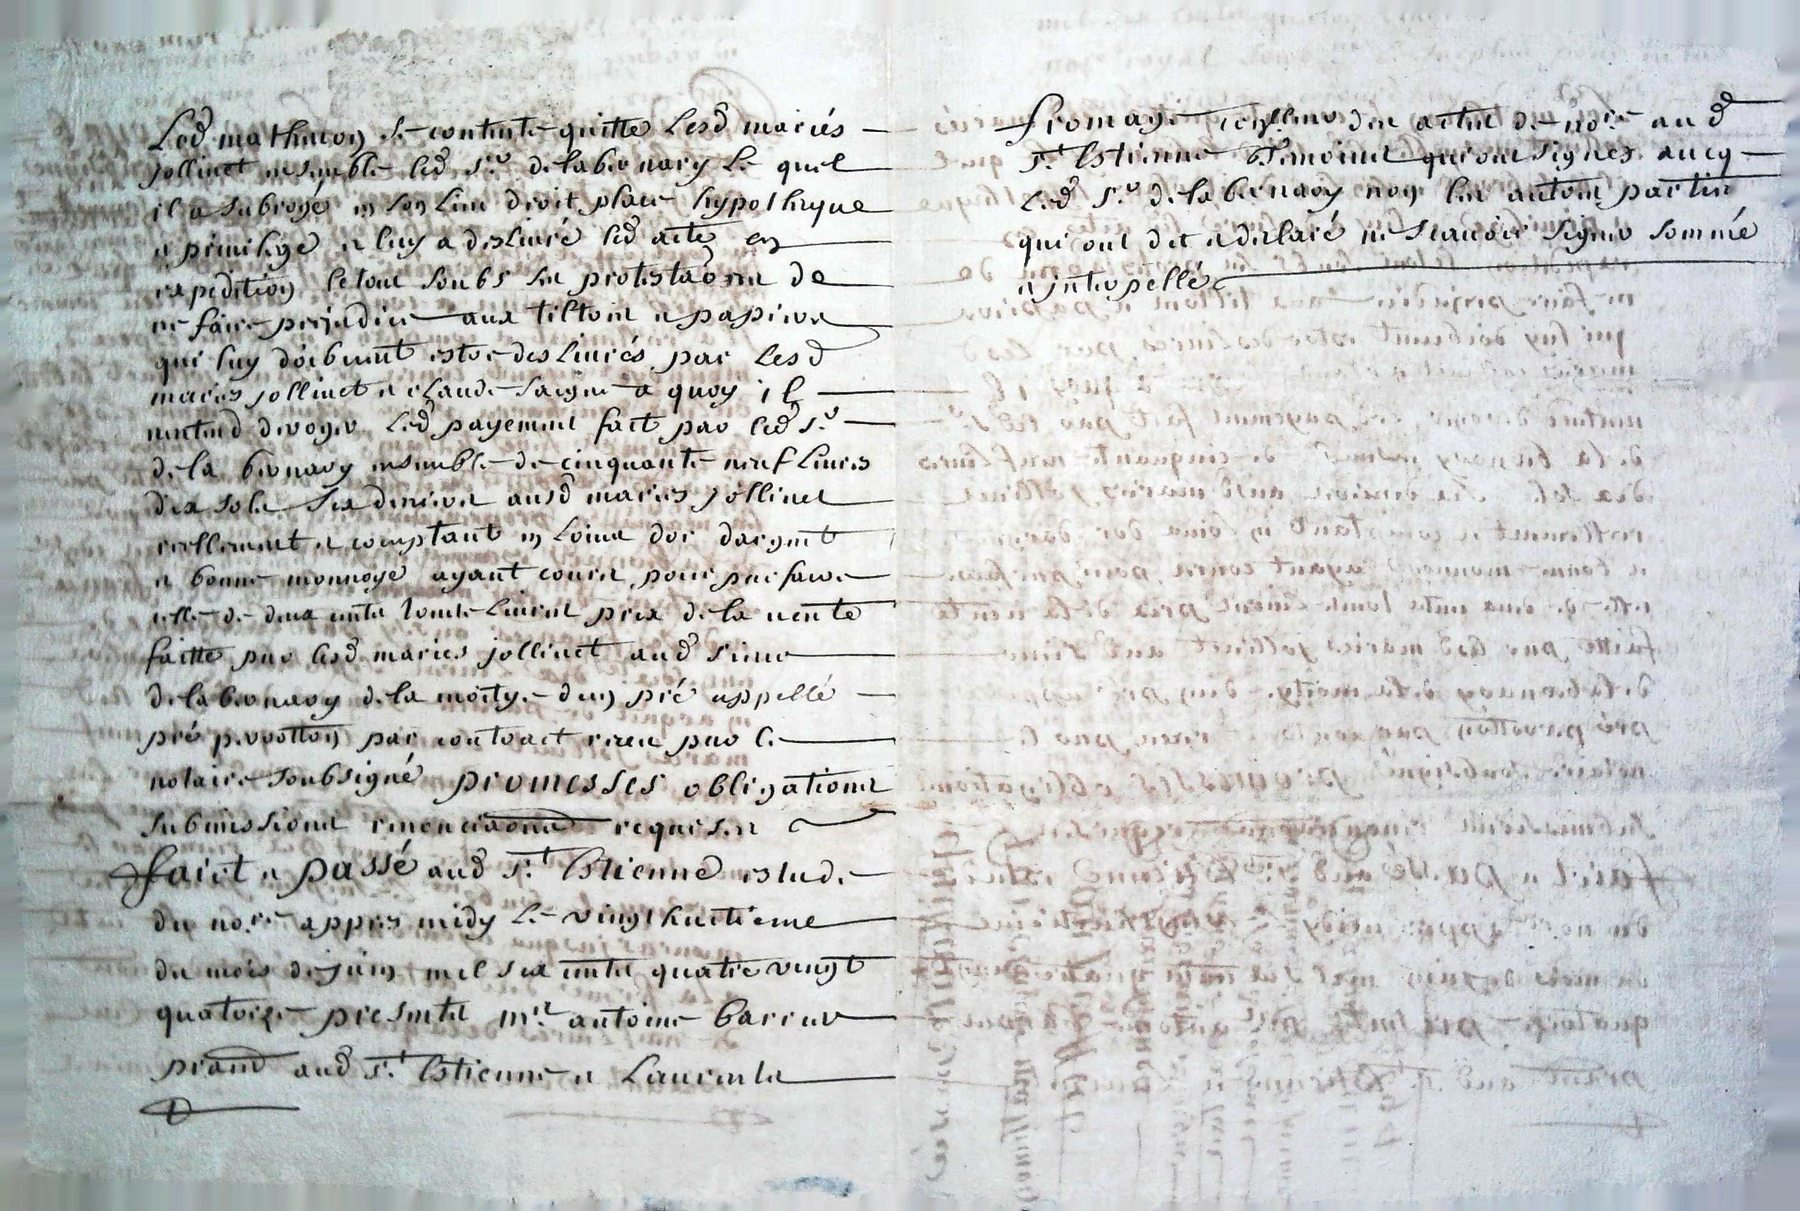 Led mathieu se contente quitte lesd mariés
jollivet ensemble led Sr. de la bernary Le quel
il a subrogé en son Lieu droit place hypotheque
et privilege et luy a deslivré led acte en
expedition le tout soubs sa protestaõn de
ne faire prejudice aux tiltres et papiers
qui luy doibvent estre deslivrés par lesd
mariés jollivet et claude a quoy il
nentend deroger Led payement fait par led Sr.
de la bernary ensemble de cinquante neuf Livres
dix sols six deniers ausd mariés jollivet
reellement et comptant en Loüis dor dargent
et bonne monnoye ayant cours pour parfaire
celle de deux cents Livres prix de la vente
faitte par lesd mariés jollivet aud Sieur
de la bernary de la moitye dun pré appellé
pré par contract receu par le
notaire soubsigné promesses obligations
submissions renonciaõns requises
faict et passé aud St. Estienne estude
du nore. appres midy Le vingt huictieme
du mois de juin mil six cents quatre vingt
quatorze presents me. antoine barreur
aud St. Estienne et Laurents
fromage aud
St. Estienne tesmoins qui ont signes avecq
Led Sr. de la bernary non les autres parties
qui ont dit et declaré ne scavoir signer sommé
et interpellé